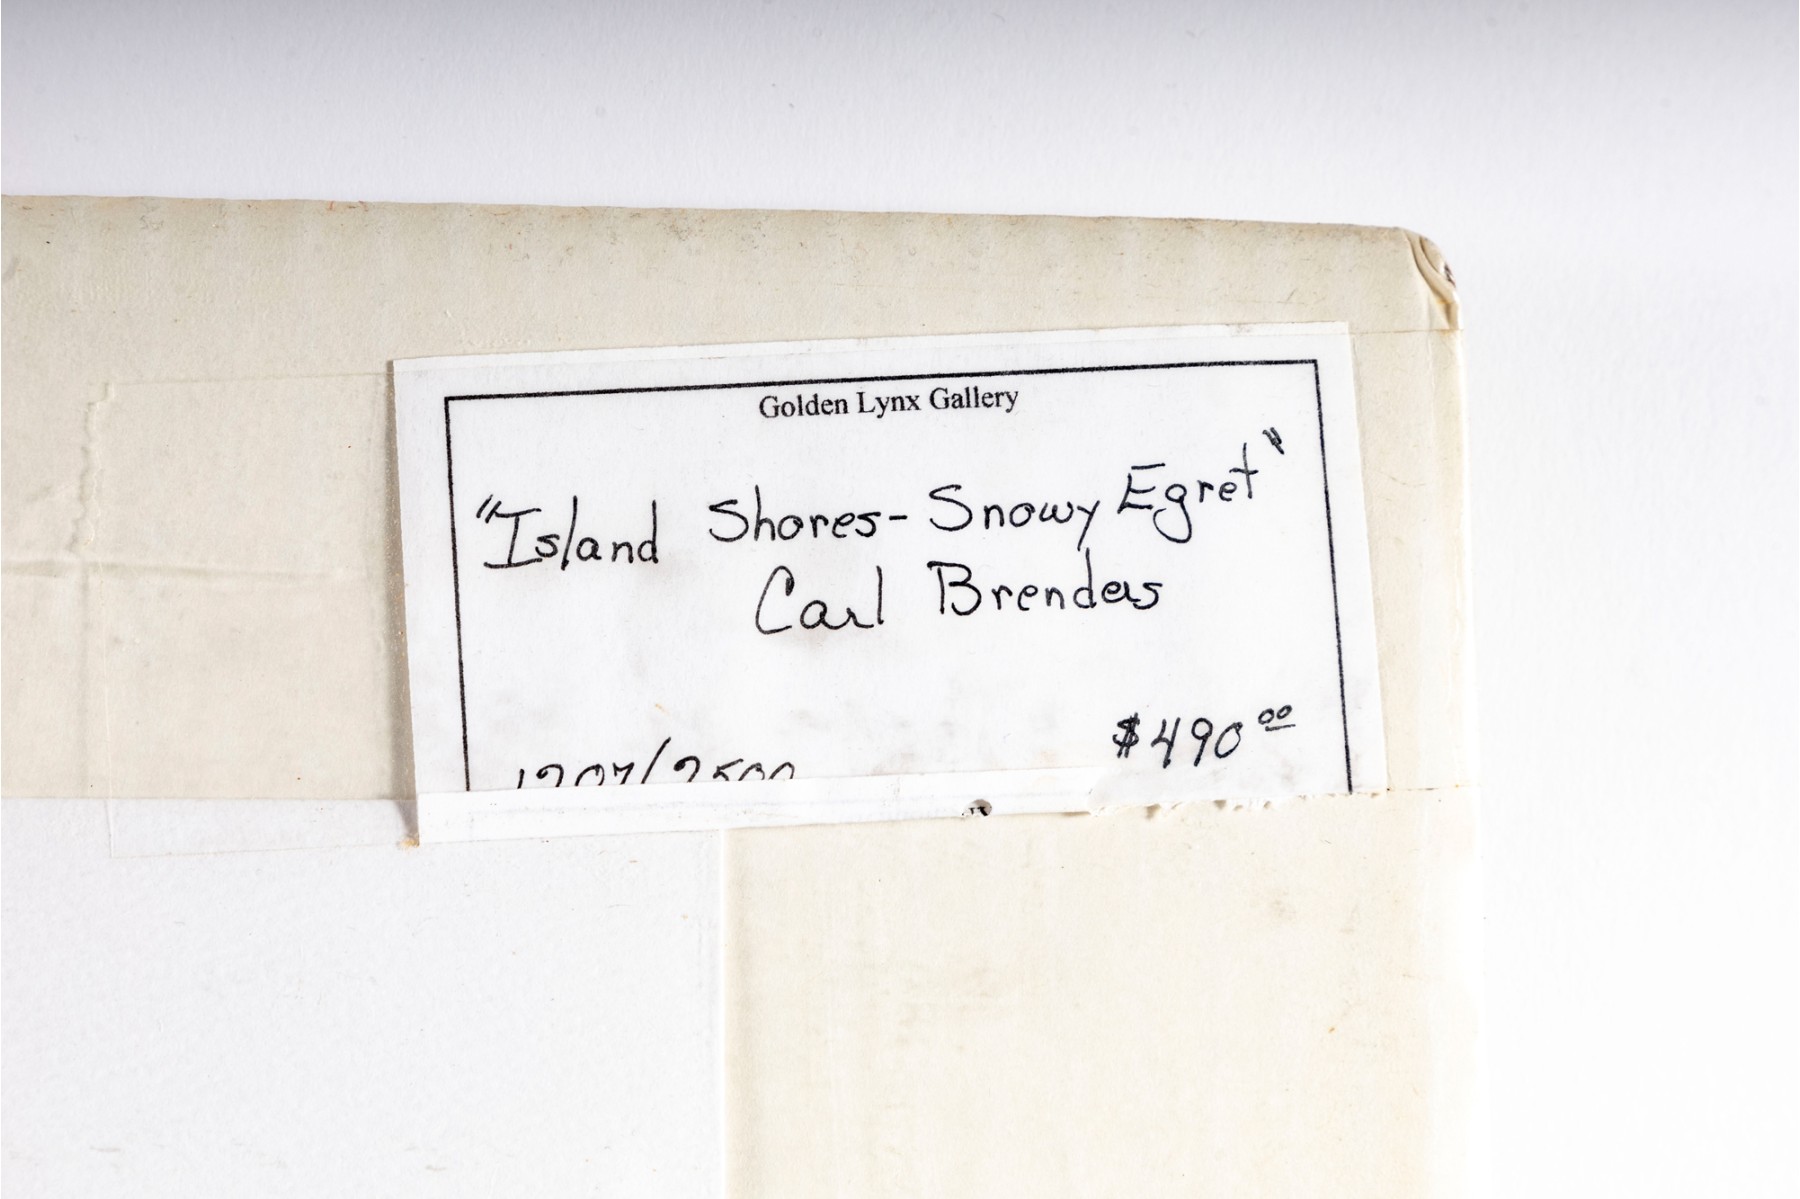 Golden Lynx Gallery
"Island Shores - Snowy Egret"
Carl Brenders
$490.00